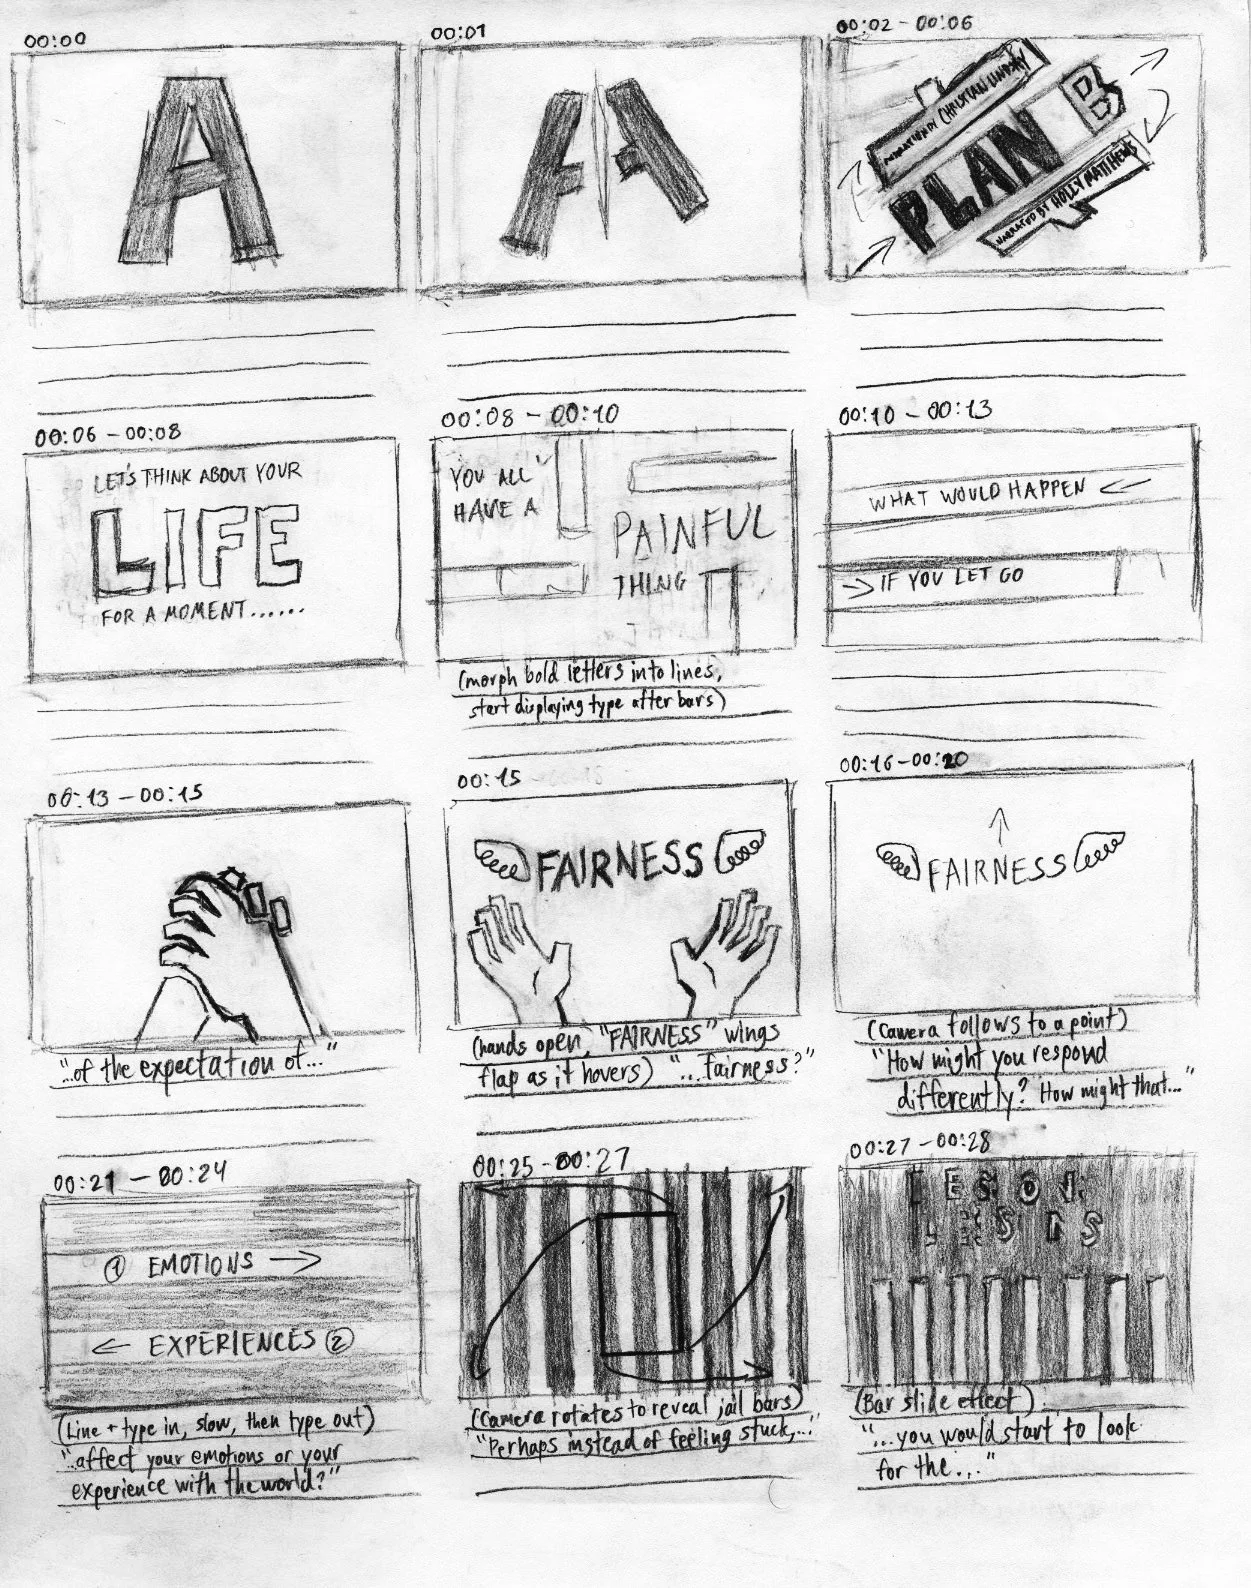 00:00
A
00:01
A
00:02 - 00:06
CHRISTIAN LINDSAY
PLAN B
NARRATED BY HOLLY MATTHEWS
00:06 - 00:08
LET'S THINK ABOUT YOUR
LIFE
FOR A MOMENT......
00:08 - 00:10
YOU ALL
HAVE A
PAINFUL
THING
(morph bold letters into lines,
start displaying type after bars)
00:10 - 00:13
WHAT WOULD HAPPEN
IF YOU LET GO
00:13 - 00:15
"..of the expectation of..."
00:15
FAIRNESS
(hands open, "FAIRNESS" wings
flap as it hovers) "...fairness?"
00:16 - 00:20
FAIRNESS
(Camera follows to a point)
"How might you respond
differently? How might that..."
00:21 - 00:24
1 EMOTIONS
EXPERIENCES 2
(Line + type in, slow, then type out)
"..affect your emotions or your
experience with the world?"
00:25 - 00:27
(Camera rotates to reveal jail bars)
"Perhaps instead of feeling stuck,..."
00:27 - 00:28
(Bar slide effect)
"...you would start to look
for the..."